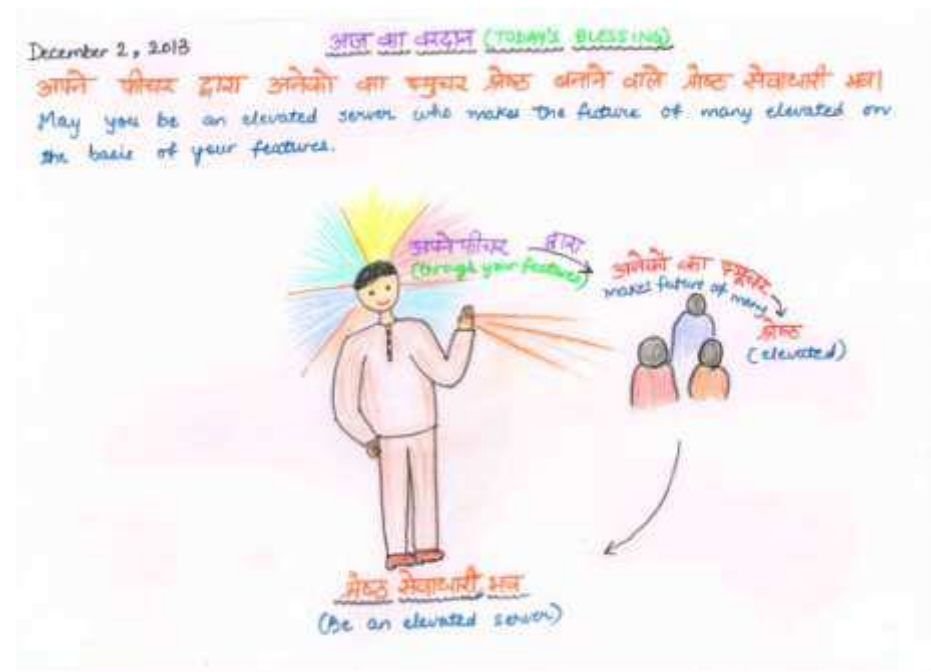 December 2, 2013
आज का वरदान (TODAY'S BLESSING)
अपने फीचर द्वारा अनेकों का फ्युचर श्रेष्ठ बनाने वाले श्रेष्ठ सेवाधारी भव।
May you be an elevated server who makes the future of many elevated on
the basis of your features.
अपने फीचर द्वारा
(through your features)
अनेकों का फ्यूचर
makes future of many
श्रेष्ठ
(elevated)
श्रेष्ठ सेवाधारी भव
(Be an elevated server)